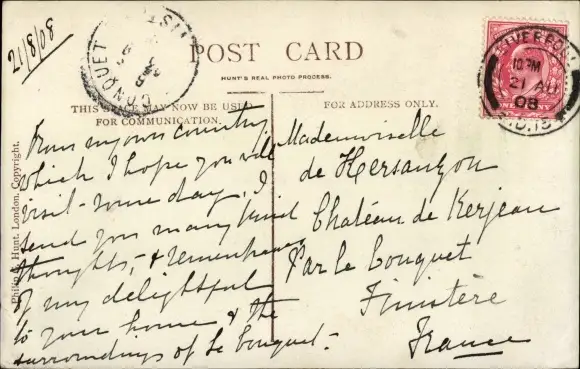 21/8/08
CONQUET
POST CARD
HUNT'S REAL PHOTO PROCESS.
THIS SPACE MAY NOW BE USED
FOR COMMUNICATION.
FOR ADDRESS ONLY.
LIVERPOOL
10 PM
21 AU
08
Philip & Hunt, London. Copyright.
From my own country
which I hope you will
visit some day, I
send you many kind
thoughts, & remembrances
of my delightful
to your home & the
surroundings of Le Conquet.
Mademoiselle
de Kersauzon
Château de Kerjean
Par Le Conquet
Finistère
France